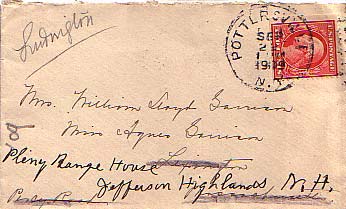 Ludington
POTTERSVI
SEP
2
1909
N.
Mrs. William Lloyd Garrison
Miss Agnes Garrison
Pliny Range House Lexington
Jefferson Highlands, N.H.